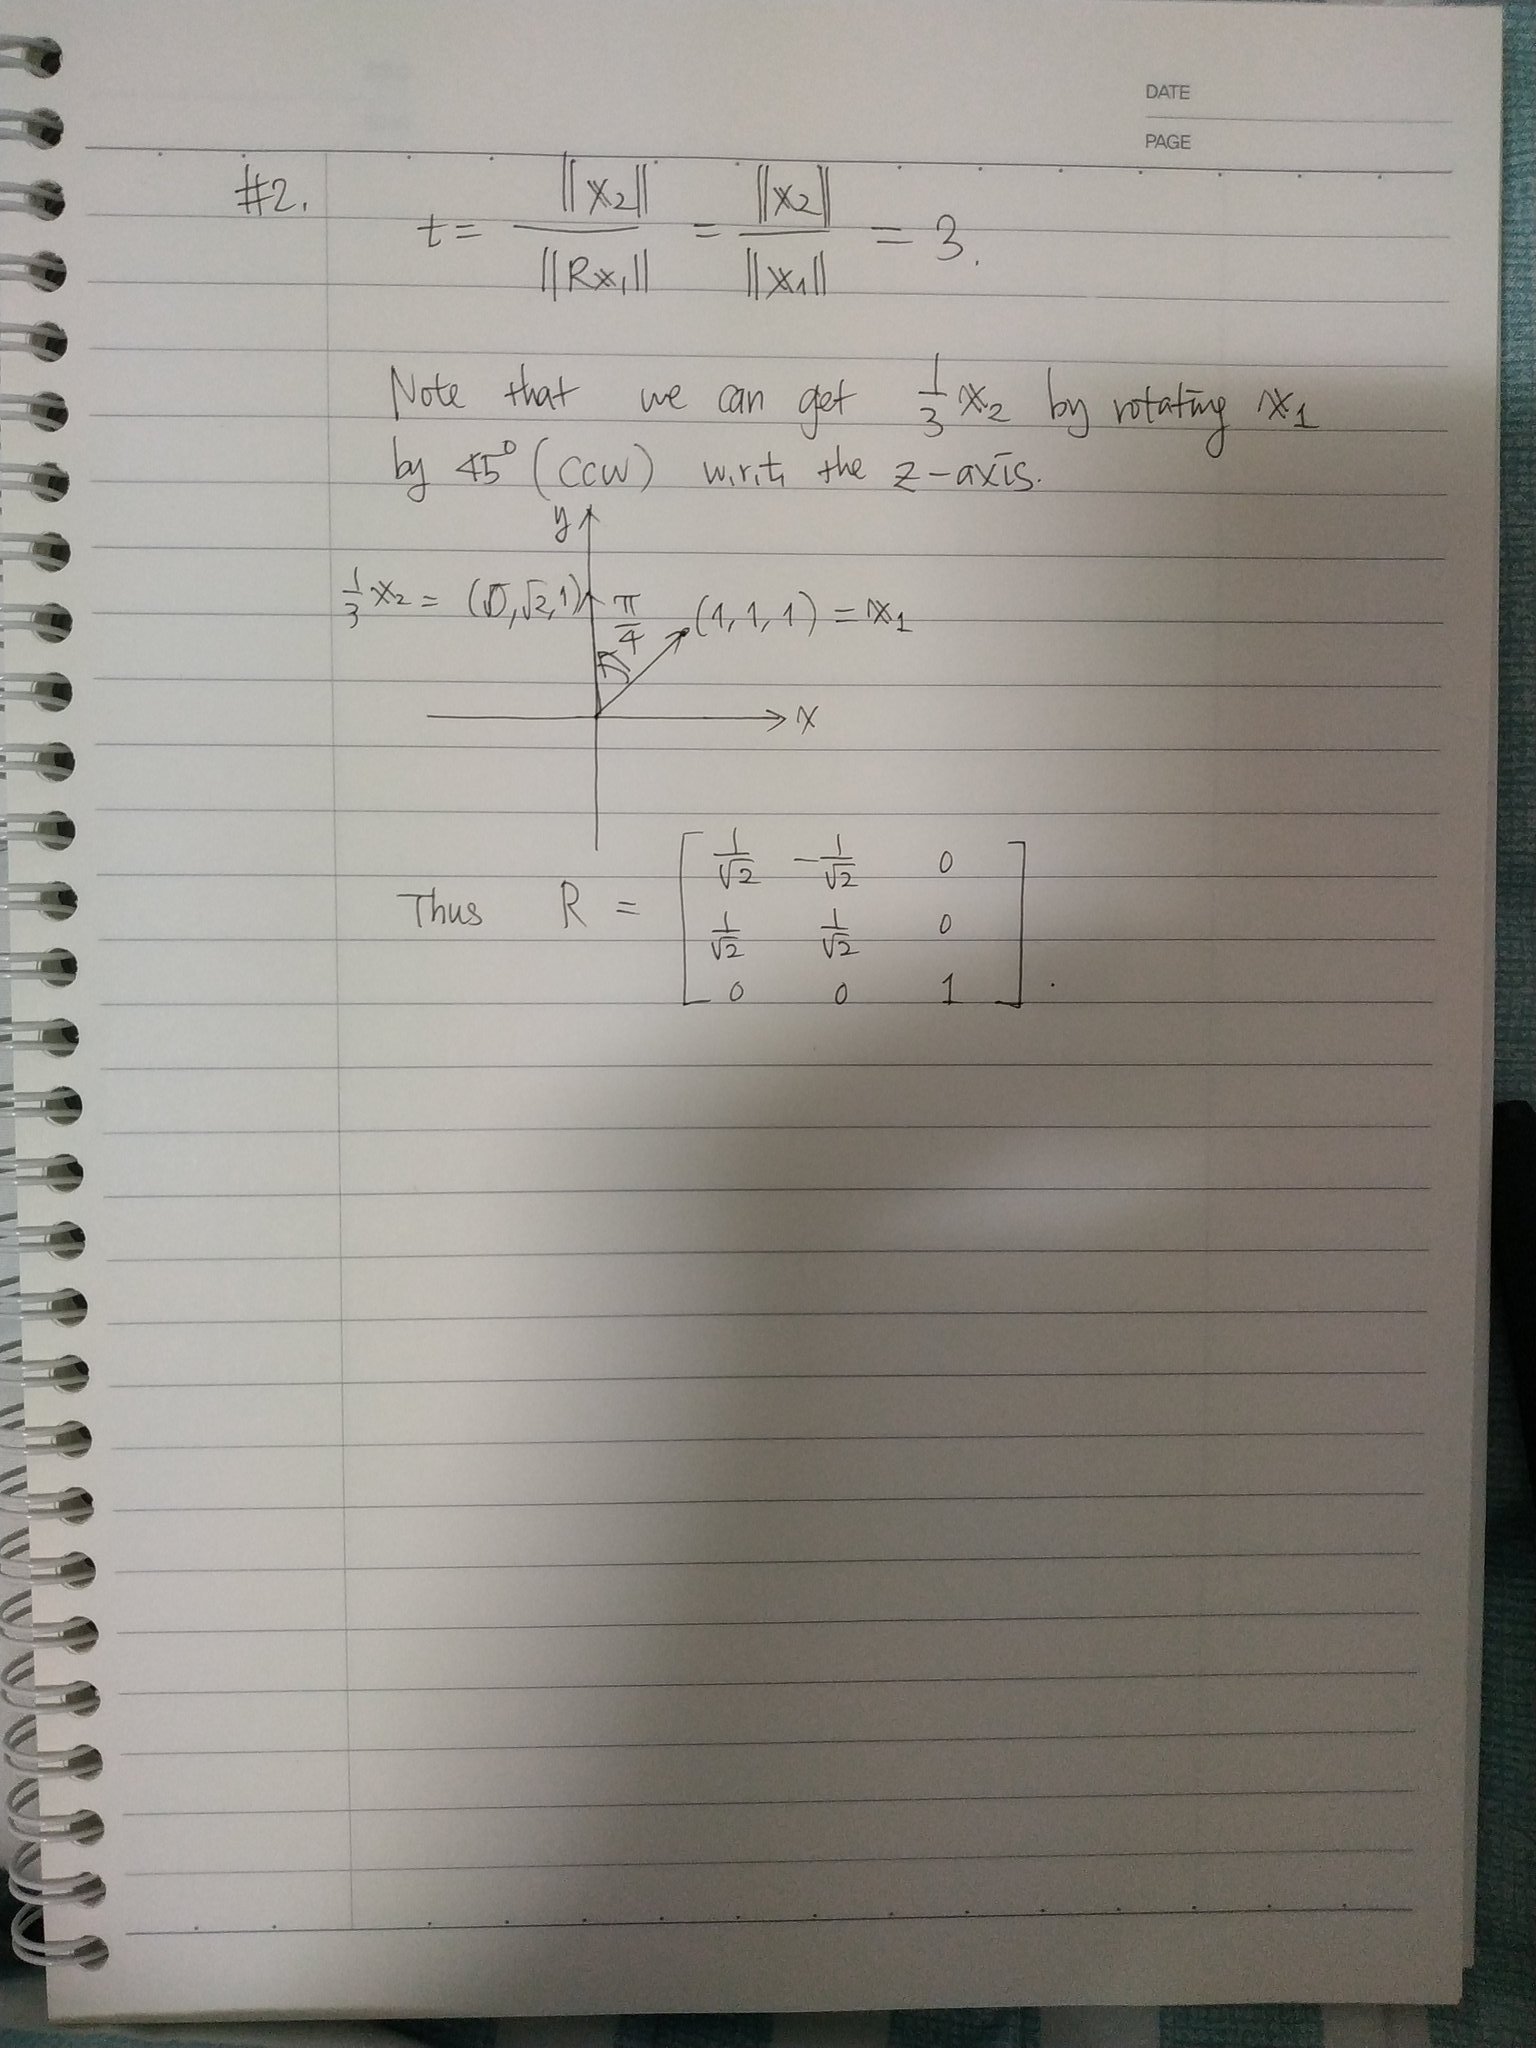 DATE
PAGE
#2. t = ||x₂|| / ||Rx₁|| = ||x₂|| / ||x₁|| = 3.
Note that we can get 1/3 x₂ by rotating x₁
by 45° (CCW) w.r.t. the z-axis.
y
1/3 x₂ = (0, √2, 1) π/4 (1, 1, 1) = x₁
x
Thus R = [ 1/√2 -1/√2 0
1/√2 1/√2 0
0 0 1 ] .